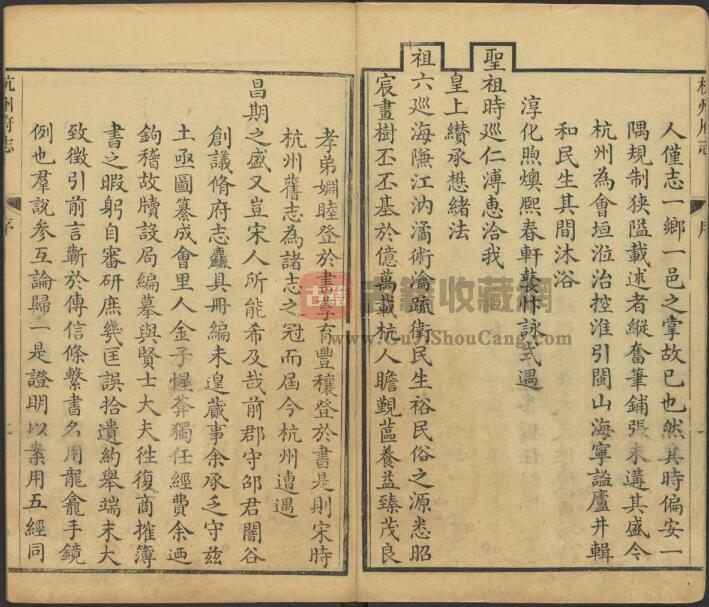 杭州府志
序
人僅志一鄉一邑之掌故已也然其時偏安一
隅規制狹隘載述者縱奮筆鋪張未遘其盛今
杭州為會垣涖治控淮引閩山海寧謐廬井輯
和民生其間沐浴
淳化煦燠熙春軒鼚忭詠式遇
聖祖時巡仁溥惠洽我
皇上纘承懋緒法
祖六巡海隒江汭潏術瀹疏衛民生裕民俗之源悉昭
宸畫樹丕丕基於億萬載杭人瞻覲蒀養益臻茂良
孝弟婣睦登於書孳育豐穰登於書是則宋時
杭州舊志為諸志之冠而屆今杭州遭遇
昌期之盛又豈宋人所能希及哉前郡守邵君闇谷
創議脩府志麤具冊編未遑蕆事余承乏守茲
土亟圖纂成會里人金子惺葊獨任經費余迺
鉤稽故牘設局編摹與賢士大夫往復商搉簿
書之暇躬自審研庶幾匡誤拾遺約舉端末大
致徵引前言蘄於傳信條繫書名用龍龕手鏡
例也羣說參互論歸一是證明以案用五經同
杭州府志
序
古籍收藏網
www.GuJiShouCang.com